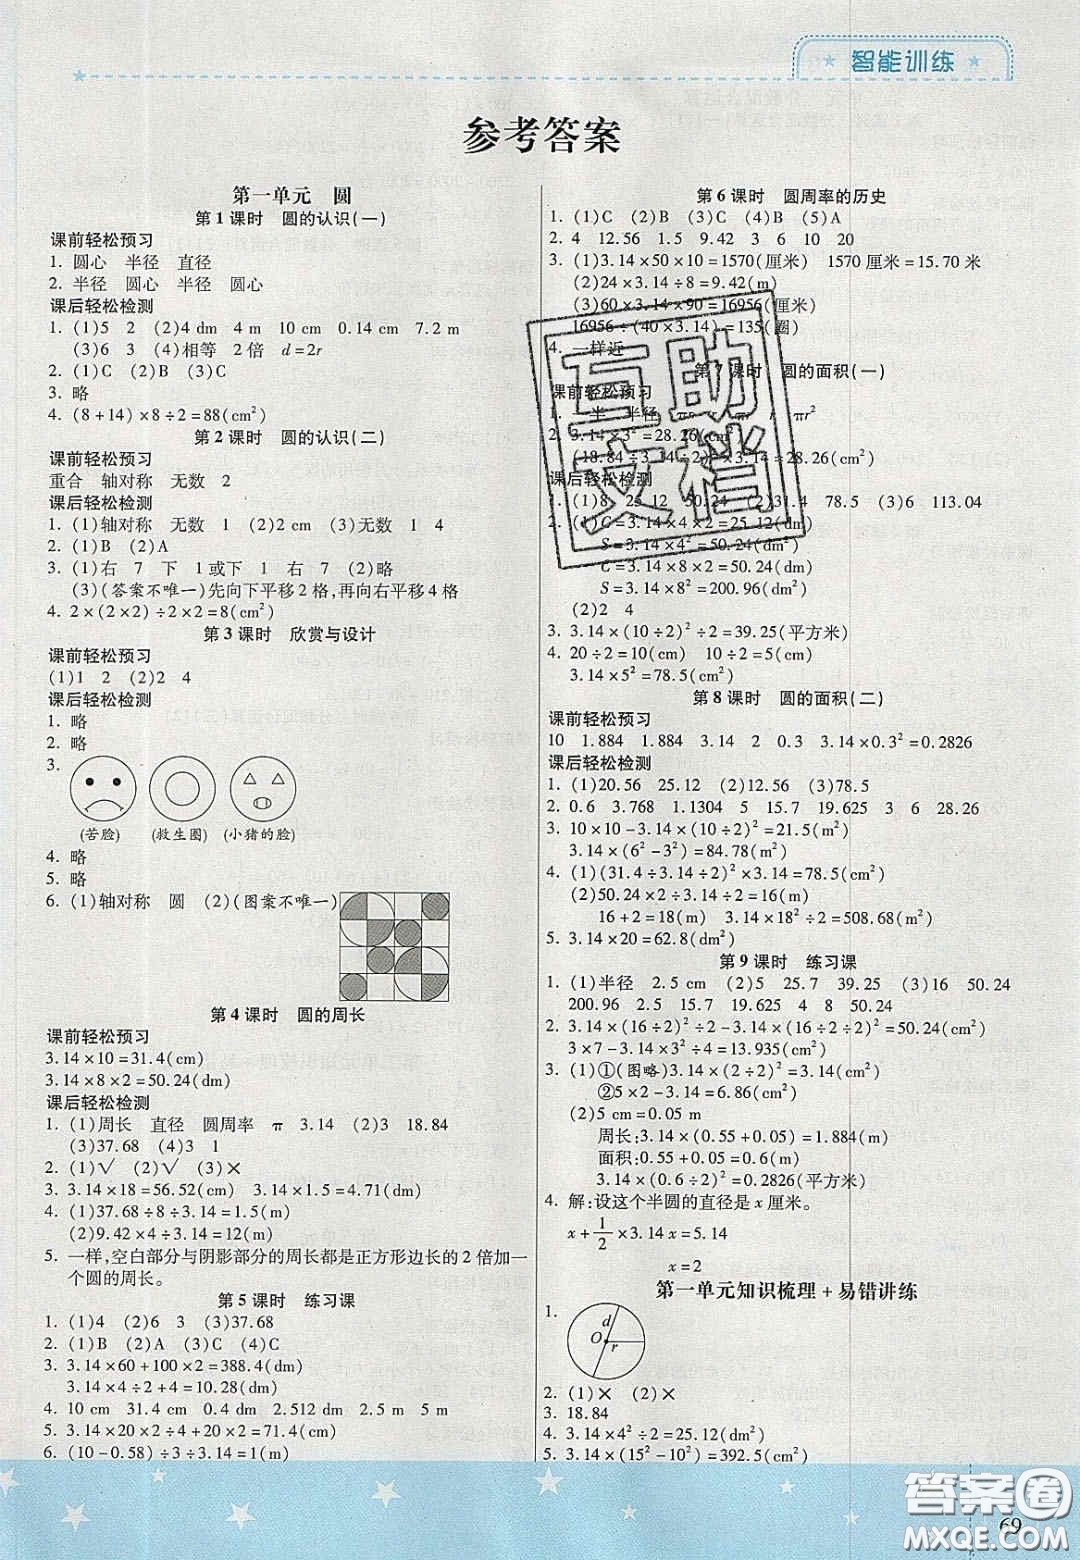 智能训练
参考答案
第一单元 圆
第1课时 圆的认识(一)
课前轻松预习
1. 圆心 半径 直径
2. 半径 圆心 半径 圆心
课后轻松检测
1. (1)5 2 (2)4 dm 4 m 10 cm 0.14 cm 7.2 m
(3)6 3 (4)相等 2倍 d=2r
2. (1)C (2)B (3)C
3. 略
4. (8+14)×8÷2=88(cm²)
第2课时 圆的认识(二)
课前轻松预习
重合 轴对称 无数 2
课后轻松检测
1. (1)轴对称 无数 1 (2)2 cm (3)无数 1 4
2. (1)B (2)A
3. (1)右 7 下 1或下 1 右 7 (2)略
(3)(答案不唯一)先向下平移2格,再向右平移4格
4. 2×(2×2)÷2×2=8(cm²)
第3课时 欣赏与设计
课前轻松预习
(1)1 2 (2)2 4
课后轻松检测
1. 略
2. 略
3.
(苦脸) (救生圈) (小猪的脸)
4. 略
5. 略
6. (1)轴对称 圆 (2)(图案不唯一)
第4课时 圆的周长
课前轻松预习
3.14×10=31.4(cm)
3.14×8×2=50.24(dm)
课后轻松检测
1. (1)周长 直径 圆周率 π 3.14 (2)3 18.84
(3)37.68 (4)3 1
2. (1)√ (2)√ (3)×
3. 3.14×18=56.52(cm) 3.14×1.5=4.71(dm)
4. (1)37.68÷8÷3.14=1.5(m)
(2)9.42×4÷3.14=12(m)
5. 一样,空白部分与阴影部分的周长都是正方形边长的2倍加一
个圆的周长。
第5课时 练习课
1. (1)4 (2)6 3 (3)37.68
2. (1)B (2)A (3)C (4)C
3. 3.14×60+100×2=388.4(dm)
3.14×4÷2+4=10.28(dm)
4. 10 cm 31.4 cm 0.4 dm 2.512 dm 2.5 m 5 m
5. 3.14×20×2÷4+20×2=71.4(cm)
6. (10-0.58)÷3÷3.14=1(m)
第6课时 圆周率的历史
1. (1)C (2)B (3)C (4)B (5)A
2. 4 12.56 1.5 9.42 3 6 10 20
3. (1)3.14×50×10=1570(厘米) 1570厘米=15.70米
(2)24×3.14÷8=9.42(m)
(3)60×3.14×90=16956(厘米)
16956÷(40×3.14)=135(圈)
4. 一样近
第7课时 圆的面积(一)
课前轻松预习
1. 一半 半径 r πr²
2. 3.14×3²=28.26(cm²)
(18.84÷3.14÷2)²×3.14=28.26(cm²)
课后轻松检测
1. (1)8 25.12 50.24 (2)31.4 78.5 (3)6 113.04
2. (1)C=3.14×4×2=25.12(dm)
S=3.14×4²=50.24(dm²)
C=3.14×8×2=50.24(dm)
S=3.14×8²=200.96(dm²)
(2)2 4
3. 3.14×(10÷2)²÷2=39.25(平方米)
4. 20÷2=10(cm) 10÷2=5(cm)
3.14×5²=78.5(cm²)
第8课时 圆的面积(二)
课前轻松预习
10 1.884 1.884 3.14 2 0.3 3.14×0.3²=0.2826
课后轻松检测
1. (1)20.56 25.12 (2)12.56 (3)78.5
2. 0.6 3.768 1.1304 5 15.7 19.625 3 6 28.26
3. 10×10-3.14×(10÷2)²=21.5(m²)
3.14×(6²-3²)=84.78(m²)
4. (1)(31.4÷3.14÷2)²×3.14=78.5(m²)
(2)50.24×2÷3.14÷2=16(m)
16+2=18(m) 3.14×18²÷2=508.68(m²)
5. 3.14×20=62.8(dm²)
第9课时 练习课
1. (1)半径 2.5 cm (2)5 25.7 39.25 (3)16 50.24
200.96 2.5 15.7 19.625 4 8 50.24
2. 3.14×(16÷2)²÷2-3.14×(16÷2÷2)²=50.24(cm²)
3×7-3.14×3²÷4=13.935(cm²)
3. (1)①(图略)3.14×(2÷2)²=3.14(cm²)
②5×2-3.14=6.86(cm²)
(2)5 cm=0.05 m
周长:3.14×(0.55+0.05)=1.884(m)
面积:0.55+0.05=0.6(m)
3.14×(0.6÷2)²=0.2826(平方米)
4. 解:设这个半圆的直径是x厘米。
x+1/2×3.14x=5.14
x=2
第一单元知识梳理+易错讲练
1.
d
O
r
2. (1)× (2)×
3. 18.84
4. 3.14×4²÷2=25.12(dm²)
5. 3.14×(15²-10²)=392.5(cm²)
互助
文档
答案圈
MXQE.COM
69